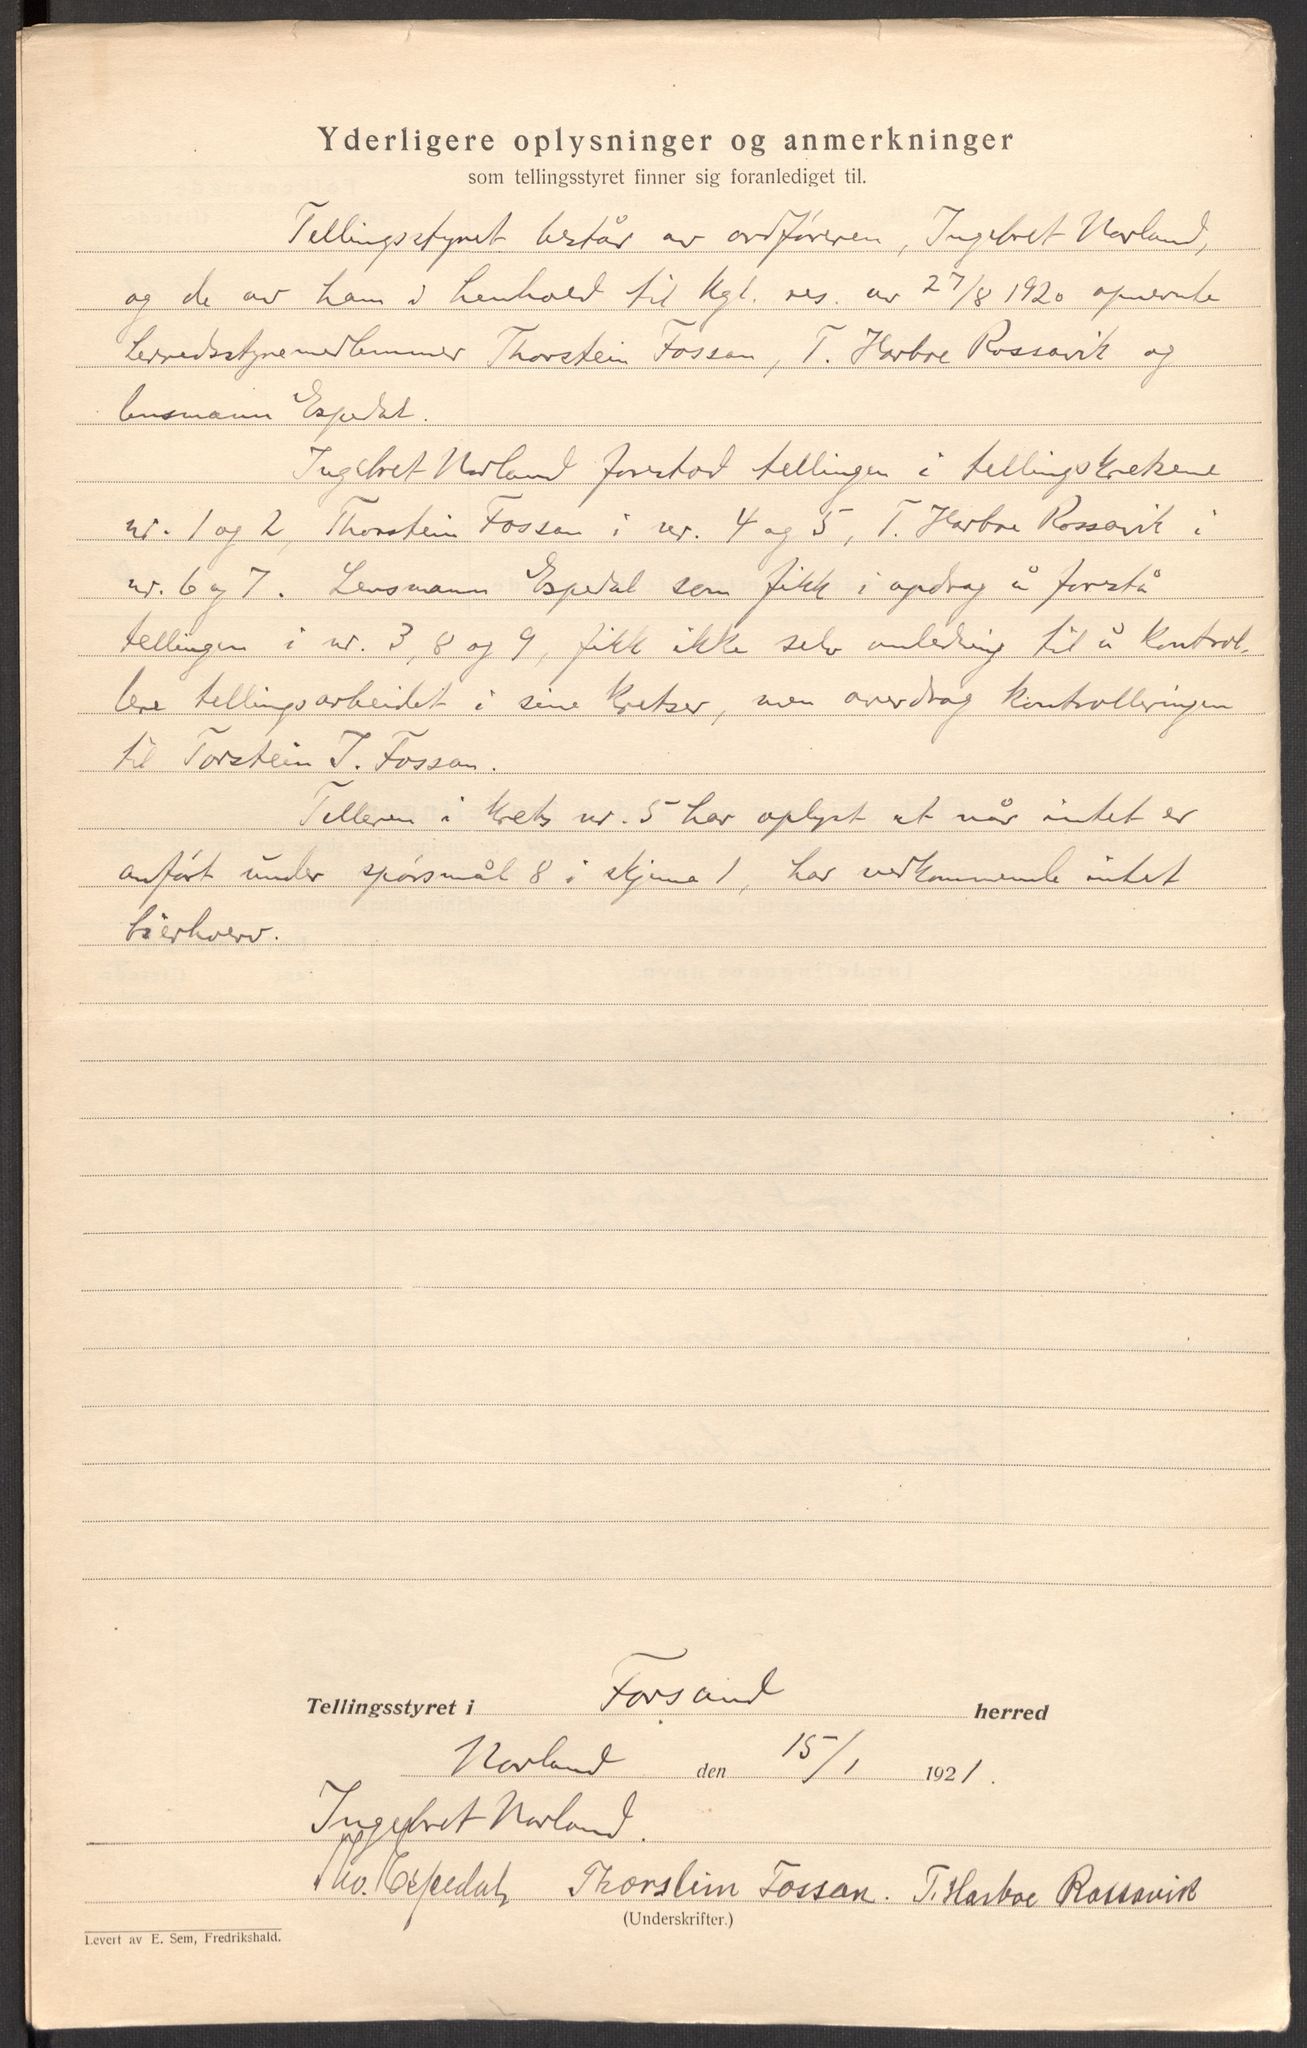 Yderligere oplysninger og anmerkninger
som tellingsstyret finner sig foranlediget til.
Tellingsstyret består av ordføreren, Ingebret Norland,
og de av ham i henhold til kgl. res. av 27/8 1920 opnevnte
herredsstyremedlemmer Thorstein Fossan, T. Harboe Rossavik og
lensmann Espedal.
Ingebret Norland forestod tellingen i tellingskretsene
nr. 1 og 2, Thorstein Fossan i nr. 4 og 5, T. Harboe Rossavik i
nr. 6 og 7. Lensmann Espedal som fikk i opdrag å forestå
tellingen i nr. 3, 8 og 9, fikk ikke selv anledning til å kontrol-
lere tellingsarbeidet i sine kretser, men overdrog kontrolleringen
til Torstein I. Fossan.
Telleren i krets nr. 5 har oplyst at når intet er
anført under spørsmål 8 i skjema 1, har vedkommende intet
bierhverv.
Tellingsstyret i Forsand herred
Norland den 15/1 1921.
Ingebret Norland.
Espedal Thorstein Fossan. T. Harboe Rossavik
(Underskrifter.)
Levert av E. Sem, Fredrikshald.